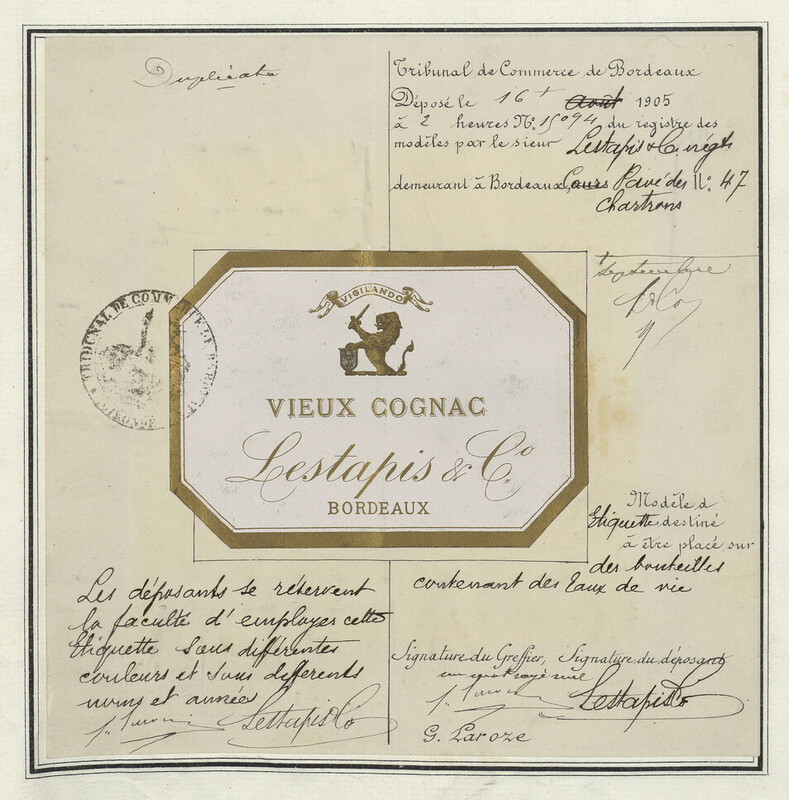 Duplicata
Tribunal de Commerce de Bordeaux
Déposé le 16 Août 1905
à 2 heures N° 15094 du registre des
modèles par le sieur Lestapis & C. négts
demeurant à Bordeaux, Cours Pavé des N° 47
Chartrons
septembre
TRIBUNAL DE COMMERCE DE
GIRONDE
VIGILANDO
VIEUX COGNAC
Lestapis & Co
BORDEAUX
Modèle d
Etiquette destiné
à être placé sur
des bouteilles
contenant des Eaux de vie
Les déposants se réservent
la faculté d'employer cette
Etiquette sous différentes
couleurs et sous differents
noms et année
Lestapis & Co
Signature du Greffier, Signature du déposant
un mot rayé nul
Lestapis & Co
G. Laroze